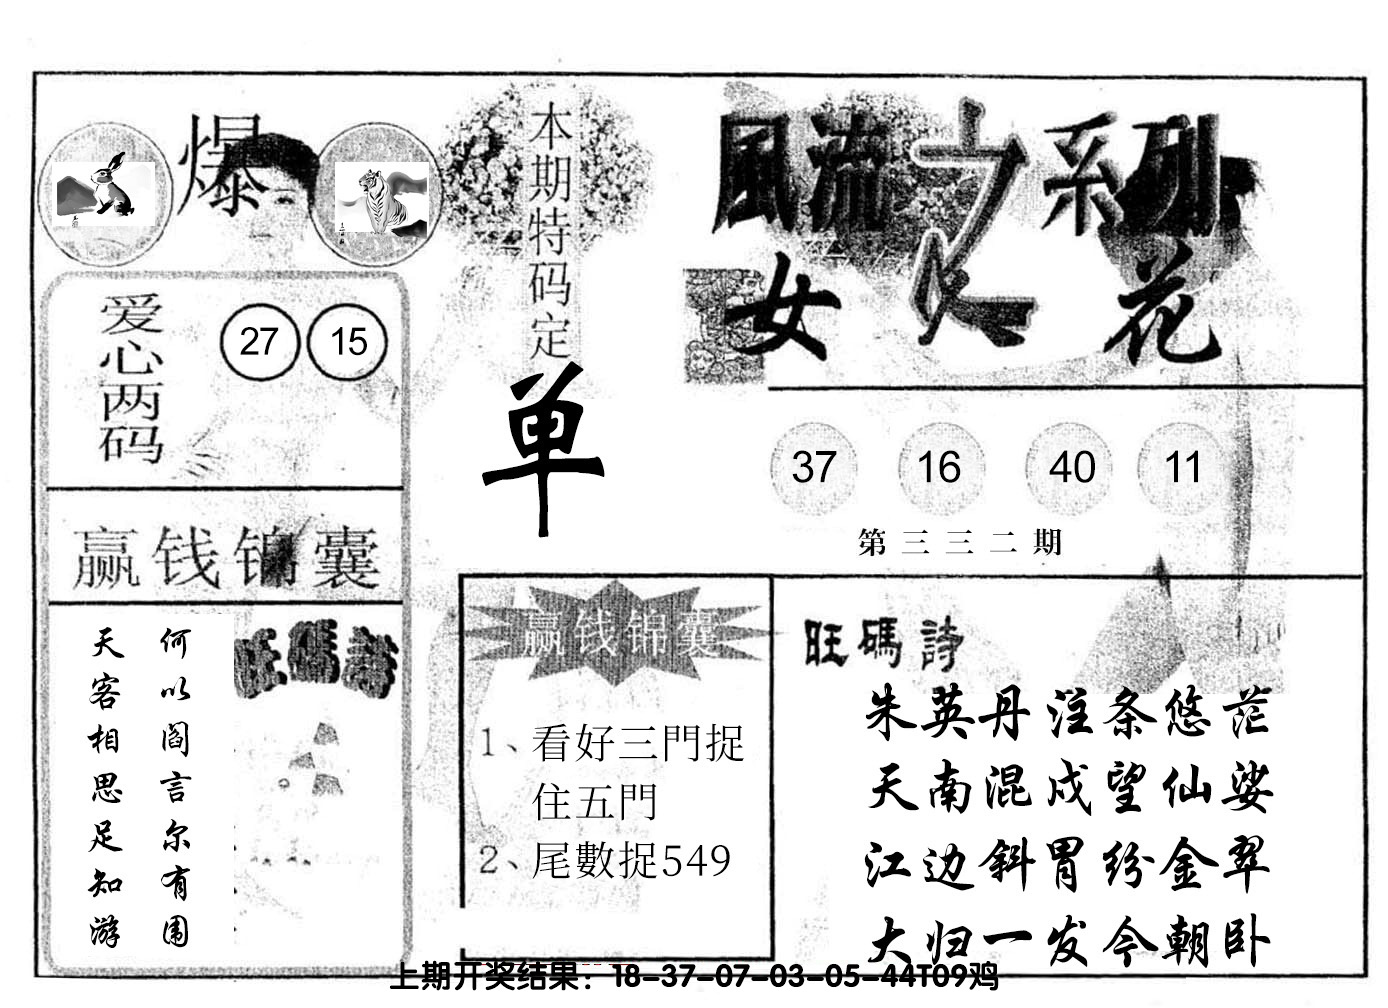 爆
本期特码定
单
風流之系列
女人花
爱心两码
27 15
37 16 40 11
第三三二期
赢钱锦囊
何以阎言尔有围
天客相思足知游
旺碼詩
赢钱锦囊
1、看好三門捉
住五門
2、尾數捉549
旺碼詩
朱英丹注条悠茫
天南混戍望仙娑
江边斜胃纷金翠
大归一发今朝卧
上期开奖结果：18-37-07-03-05-44T09鸡